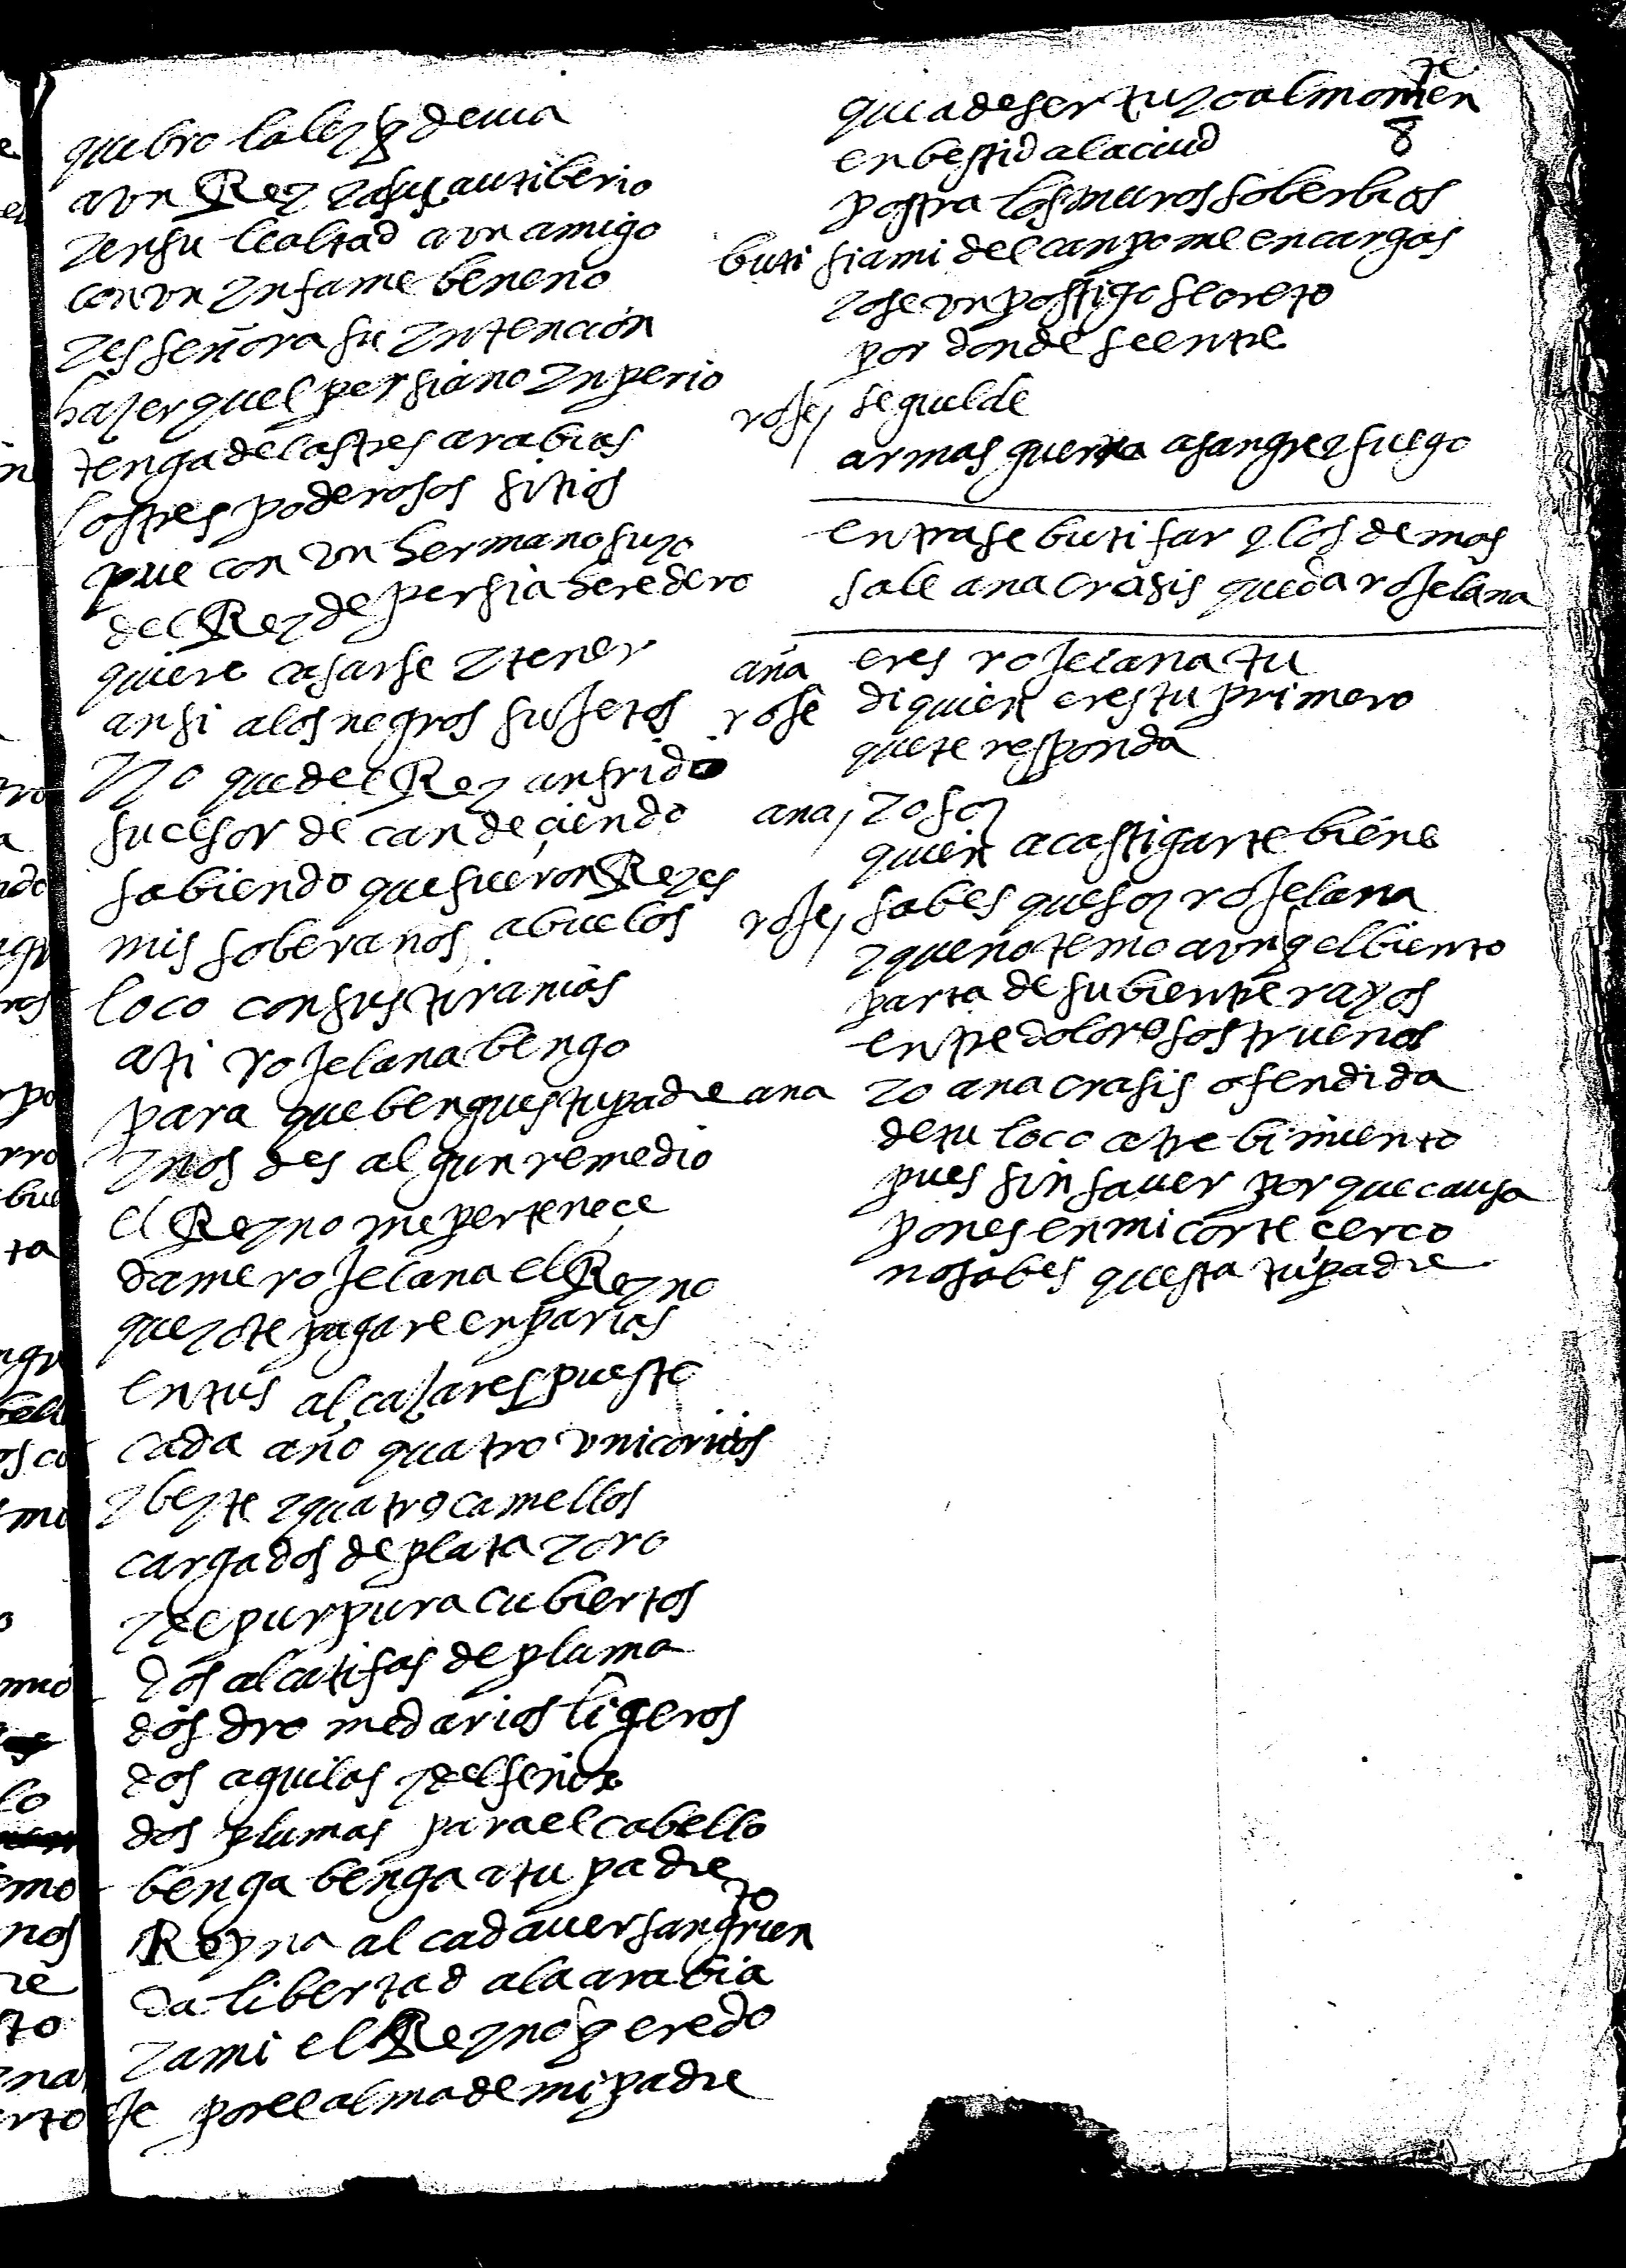 quebro la ley q devia
a un Rey y a su cautiberio
y en su lealtad a un amigo
con un ynfame beneno
y es señora su yntencion
hazer quel persiano ynperio
tenga de las tres arabias
los tres poderosos sitios
que con un hermano suyo
del Rey de persia heredero
quiere casarse y tener
ansi a los negros sujetos
yo que del Rey anfrido
sucesor de can deciendo
sabiendo que fueron Reyes
mis soberanos abuelos
loco con sus tiranias
a ti rojelana bengo
para que bengues tu padre
y nos des algun remedio
el Reyno me perteneçe
dame rojelana el Reyno
que yo te pagare en parias
en tus alcaçares puesto
cada año quatro unicornios
y beynte y quatro camellos
cargados de plata y oro
y de purpura cubiertos
dos alcatifas de pluma
dos dromedarios ligeros
dos aguilas y del fenix
dos plumas para el cabello
benga benga a tu padre
Reyna al cadaver sangriento
da libertad a la arabia
y a mi el Reyno q eredo
roje por el alma de mi padre
que a de ser tuyo al momento
8
enbestid a la ciud
postra los muros soberbios
buti si a mi del canpo me encargas
yo se un postigo secreto
por donde se entre
roje seguilde
armas guerra a sangre y fuego
entrase butifar y los demas
sale anacrasis queda rojelana
ana eres rojelana tu
roje di quien eres tu primero
que te responda
ana yo soy
quien a castigarte biene
roje sabes que soy rojelana
y que no temo aunq el biento
parta de su bientre rayos
entre dolorosos truenos
ana yo anacrasis ofendida
de tu loco atrebimiento
pues sin saver por que causa
pones en mi corte cerco
no sabes questa tu padre